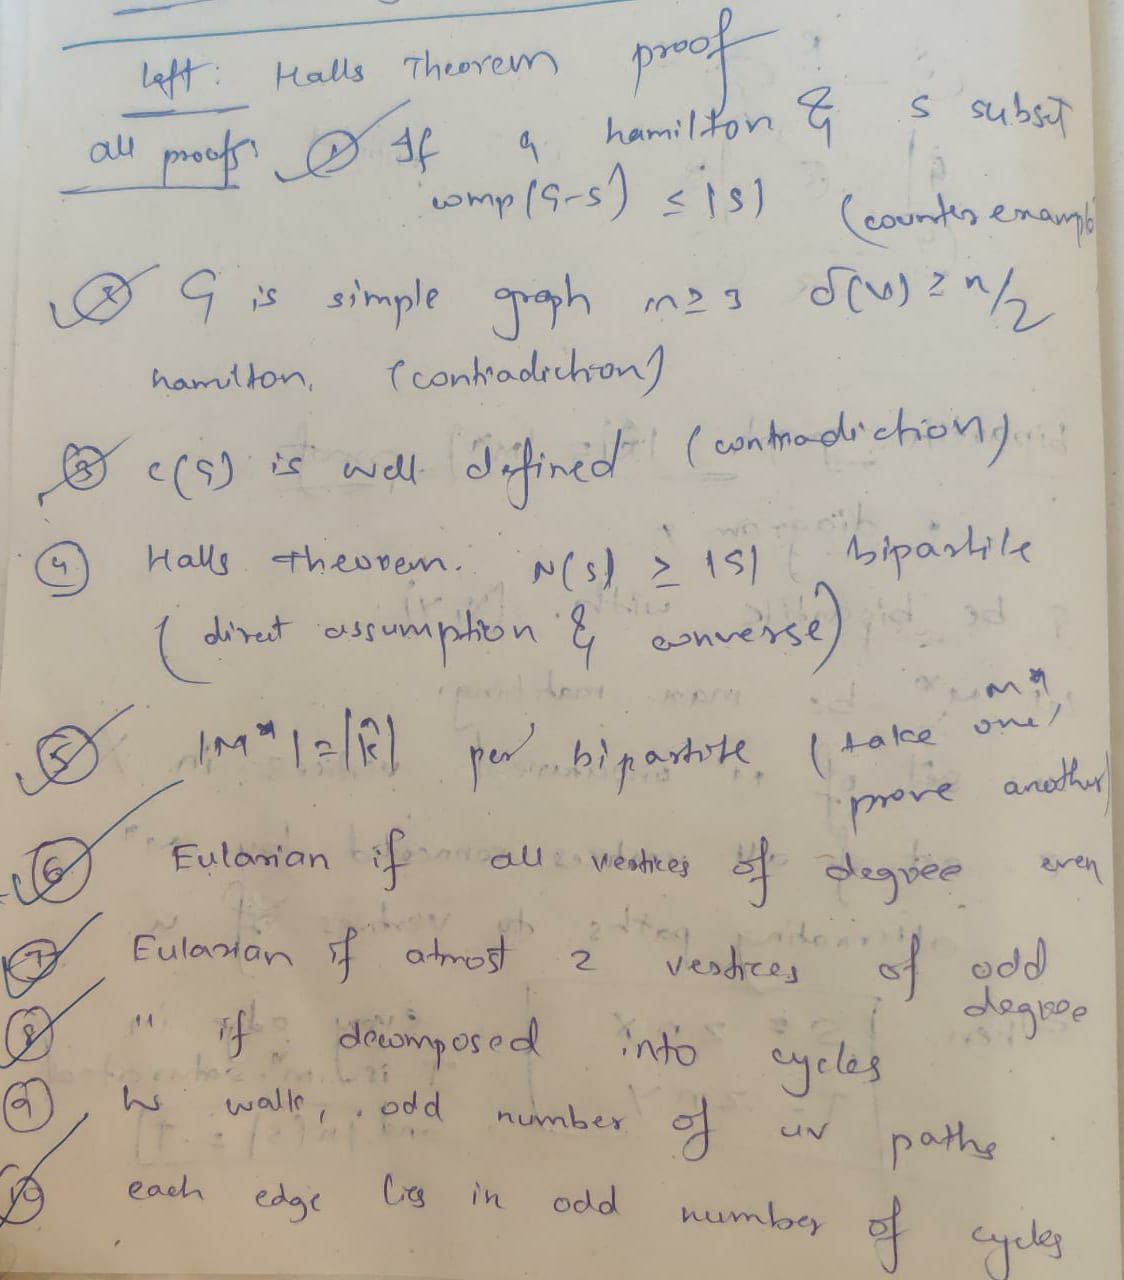 left: Halls Theorem proof
all proofs: ① If G hamilton & S subset
comp(G-S) ≤ |S| (counter exampl
② G is simple graph n≥3 δ(v) ≥ n/2
hamilton. (contradiction)
③ c(G) is well defined (contradiction)
④ Halls theorem. N(S) ≥ |S| bipartite
(direct assumption & converse)
⑤ |M*| = |K̂| per bipartite (take one, M*
prove another)
⑥ Eularian if all vertices of degree even
⑦ Eularian if atmost 2 vertices of odd
degree
⑧ " if decomposed into cycles
⑨ W walk, odd number of uv paths
⑩ each edge lies in odd number of cycles